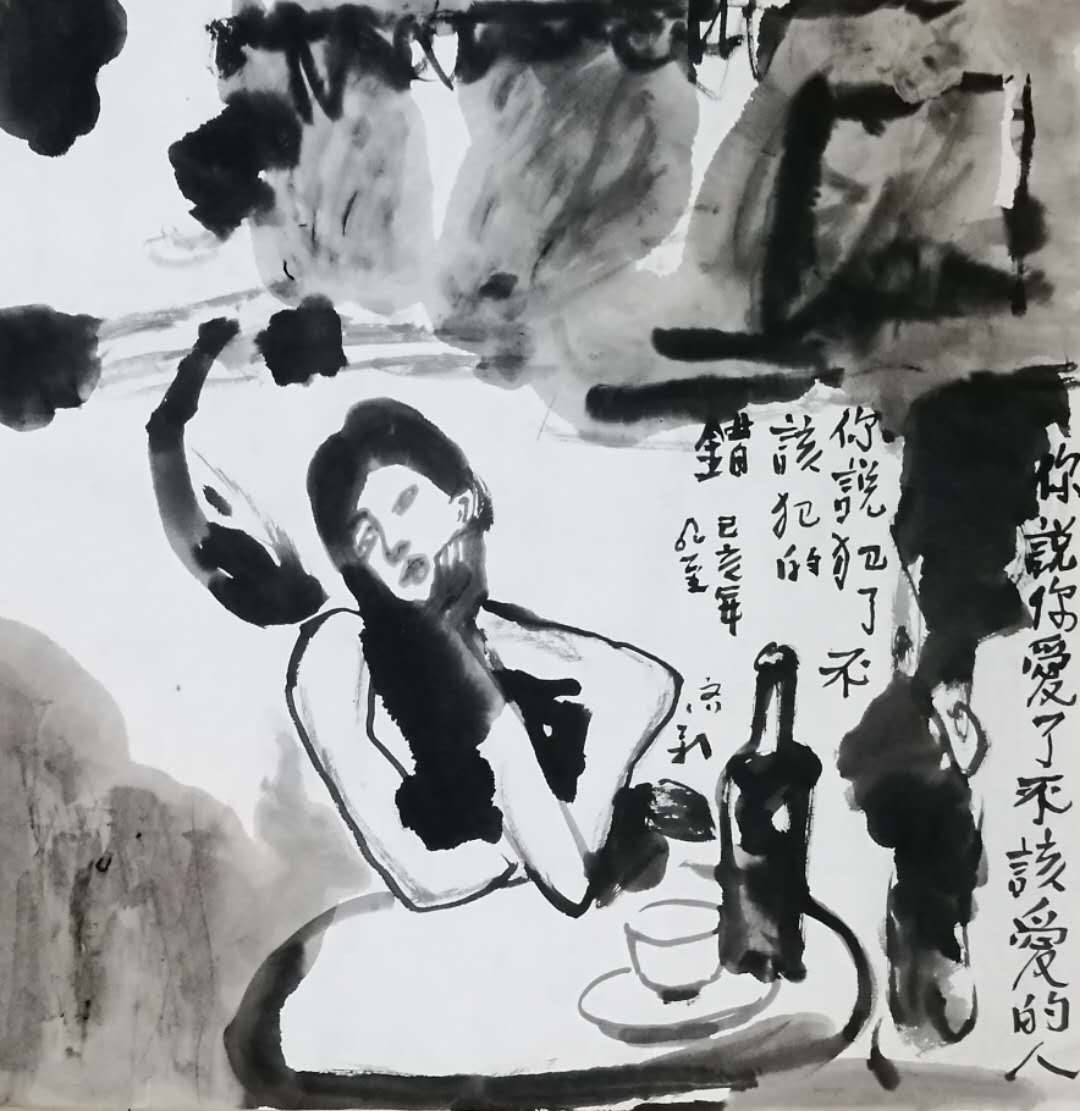 你說你愛了不該愛的人
你說犯了不
該犯的
錯
己亥年